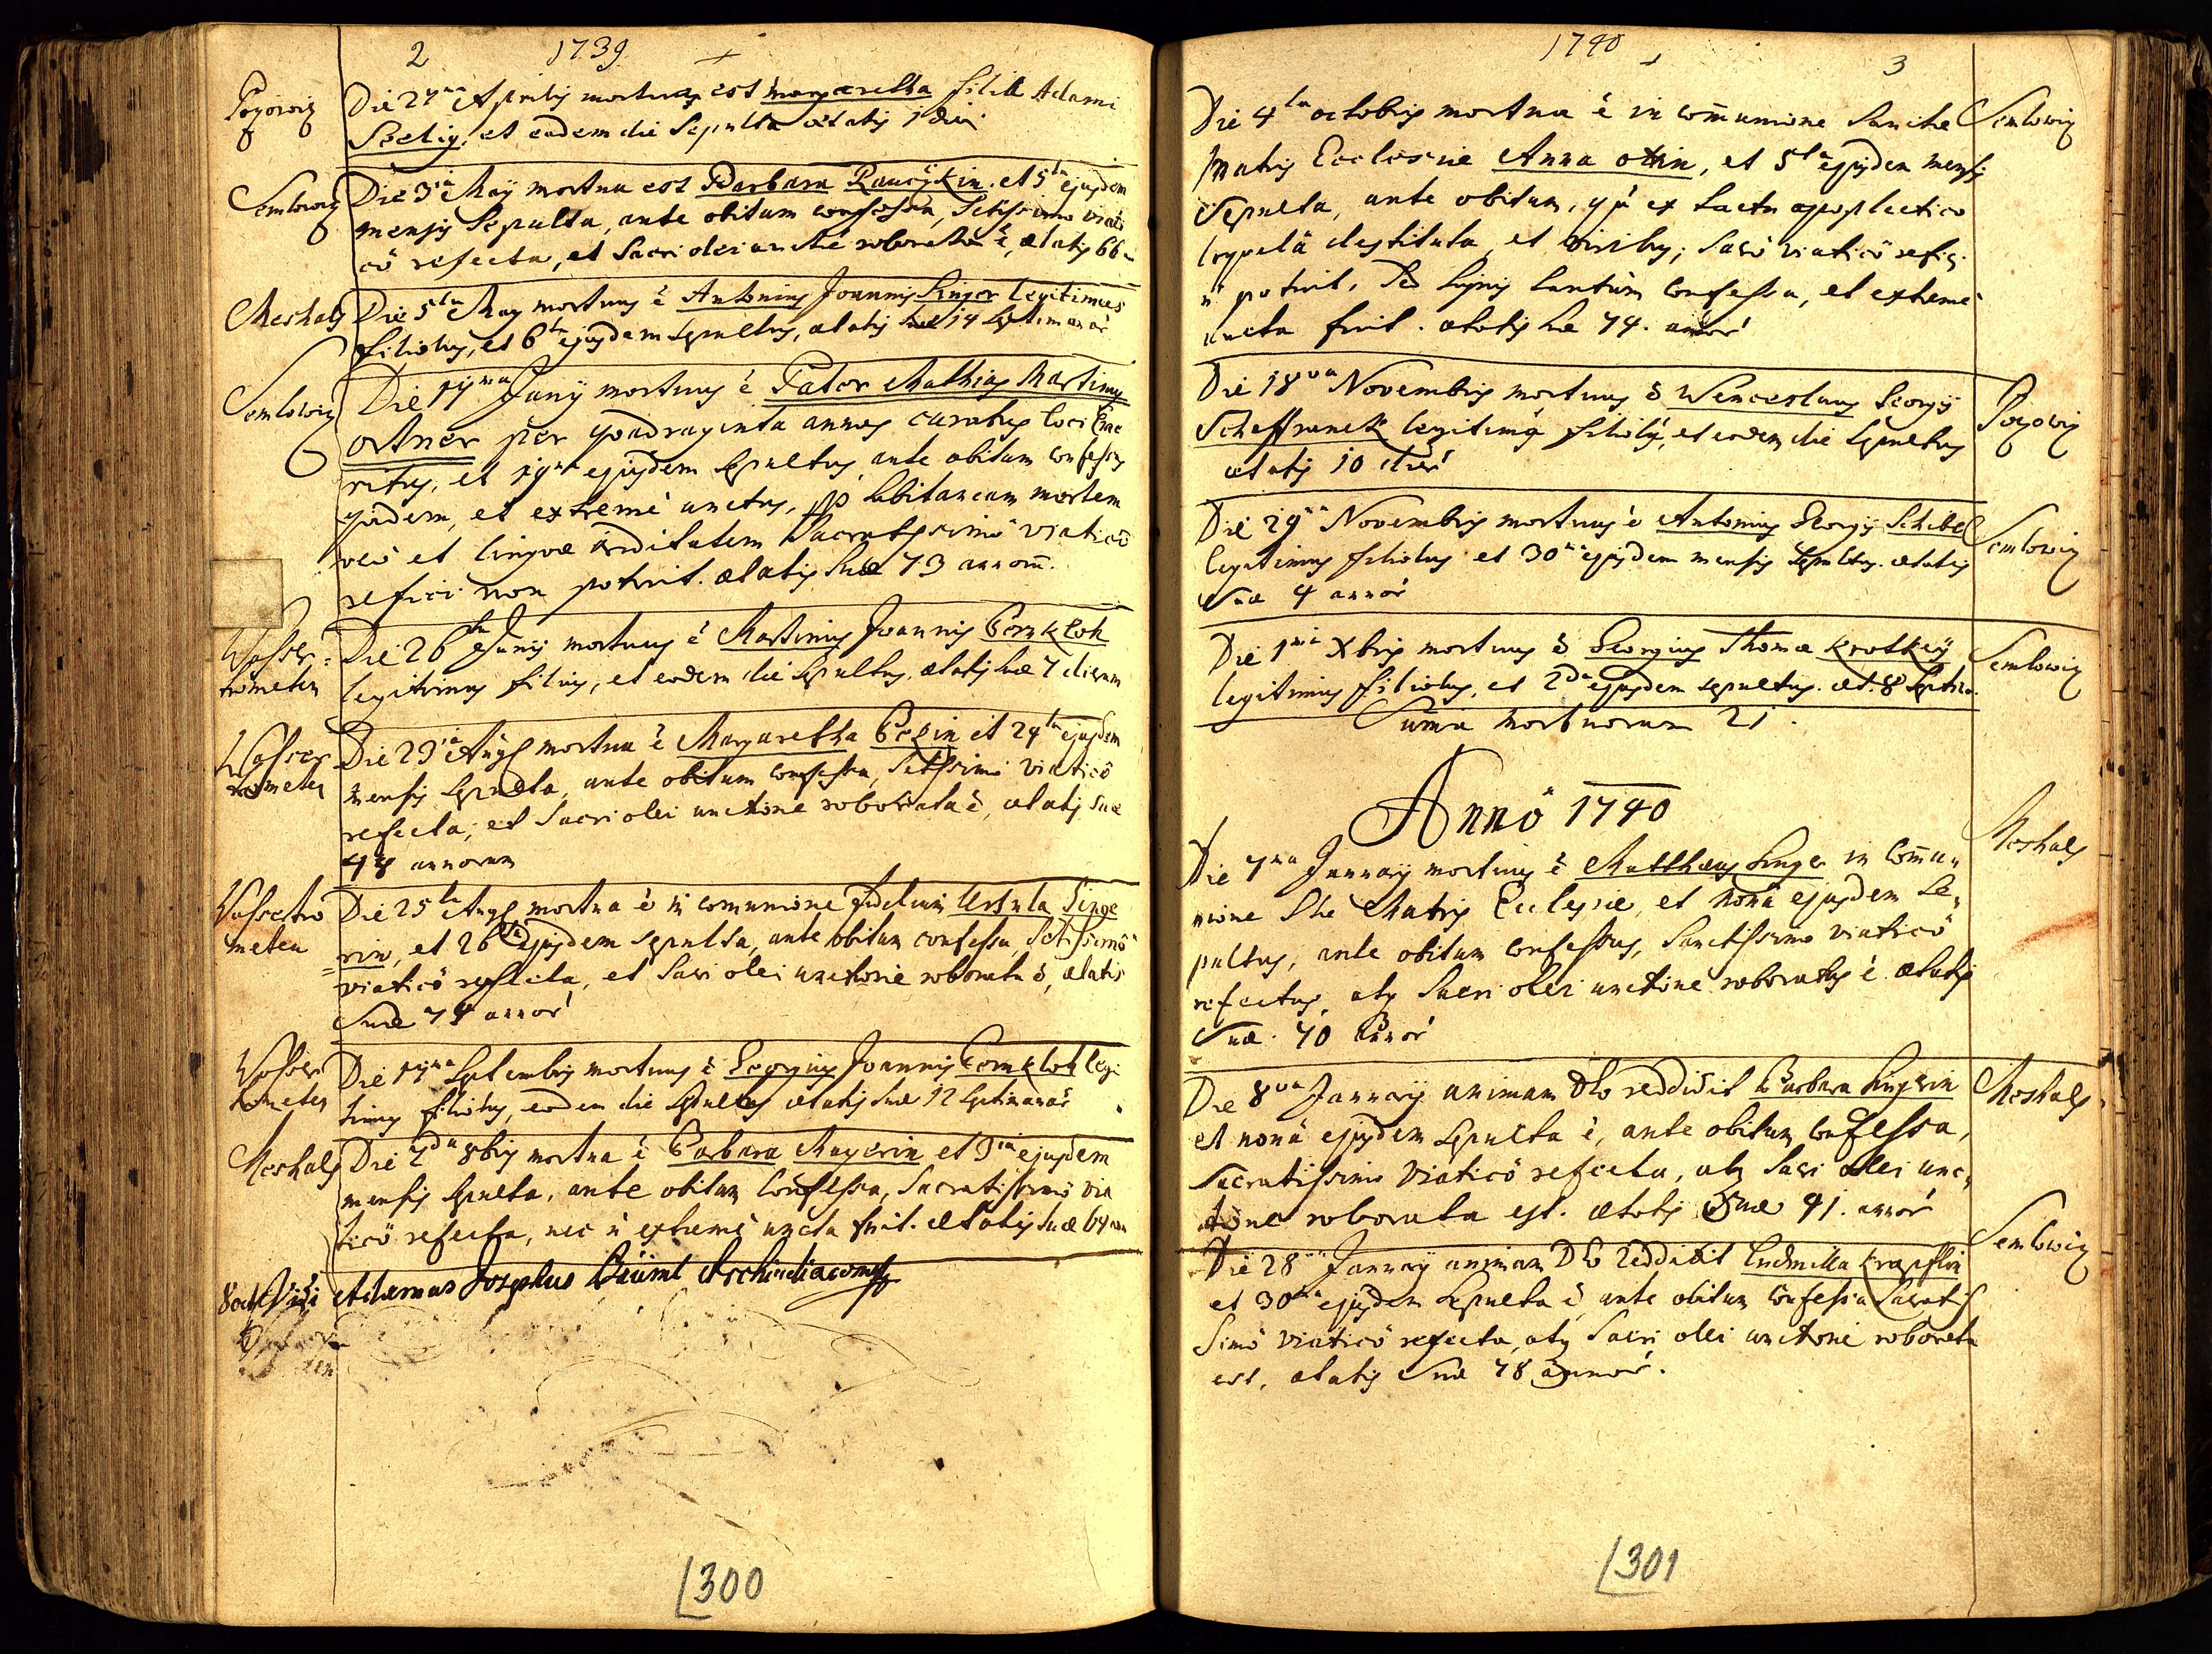 2 1739
Pogowiz
Die 27ma Aprilis mortua est Margaretha filia Adami
Seelig, et eadem die Sepulta ætatis 1 diei
Semlowiz
Die 3tia Maÿ mortua est Barbara et 5ta ejusdem
mensis Sepulta, ante obitum confessa, Sctissimo viati
cô refecta, et Sacri olei unctiõe roborata ẽ, ætatis 66
Meshals
Die 5ta May mortuus ẽ Antonius Joannis Singer legitimus
filiolus, et 6ta ejusdem sepultus, ætatis suæ 14 Septimanar̃
Semlowiz
Die Junÿ mortuus ẽ Pater Mathias Martinus
Ortner per quadraginta annos curatus loci Eme
ritus, et 19na ejusdem sepultus, ante obitum confessus
quidem, et extremè unctus, subitaneam mortem
verò et linguæ ariditatem Sacratissimô viaticô
refici non potuit. ætatis suæ 73 annorũ.
Wasser=
trometen
Die 26ta Junÿ mortuus ẽ Martinus Joannis Bernkloh
legitimus filius, et eodem die Sepultus, ætatis suæ 7 dierum
Wasser
trometen
Die 23tia Aug mortua ẽ Margaretha et 24ta ejusdem
mensis Sepulta, ante obitum confessa, Sctissimô viaticô
refecta, et Sacri olei unctione roborata ẽ, ætatis suæ
78 annorum
Wassertro
meten
Die 25ta Aug mortua ẽ in communione fidelium Ursula Singe
=rin, et 26ta ejusdem sepulta, ante obitum confessa, Sctissimô
viaticô refecta, et Sacri olei unctione roborata ẽ, ætatis
Suæ 74 annor̃
Wasser
trometen
Die Septembris mortuus ẽ Georgius Joannis Bernkloh legi
timus filiolus, eodem die Sepultus ætatis suæ 12 Septimanar̃
Meshals
Die 2da 8bris mortua ẽ Barbara Mayerin et 3tia ejusdem
mensis sepulta, ante obitum confessa, Sacratissimô via
ticô refecta, nec ñ extremè uncta fuit. Ætatis suæ 64 ann
Vidi Josephus Archidiaconus
300
1740
3
Semlowiz
Die 4ta octobris mortua ẽ in com̃unione Sanctæ
Matris Ecclesiæ Anna , et 5ta ejusdem mensis
Sepulta, ante obitum, quia ex tactu apoplectico
loquelâ destituta, et viribus, Sacrô viaticô refici
ñ potuit, sed signis tantùm confessa, et extremè
uncta fuit. ætatis suæ 74. annor̃
Pogowiz
Die 18va Novembris mortuus ẽ Wenceslaus Georgÿ
Scheffranek legitimus filiolus, et eodem die Sepultus
ætatis 10 dier̃
Semlowiz
Die 29na Novembris mortuus ẽ Antonius Georgÿ Schibel
legitimus filiolus et 30ma ejusdem mensis sepultus. ætatis
suæ 4 annor̃
Semlowiz
Die 1ma Xbris mortuus ẽ Georgius Thomæ Krotkÿ
legitimus filiolus, et 2da ejusdem sepultus. æt. 8 Septim.
Sum̃a Mortuorum 21.
Annô 1740
Meshals
Die 7ma Januarÿ mortuus ẽ Matthæus Singer in Com̃u=
nione Stæ Matris Ecclesiæ, et nonâ ejusdem Se=
pultus, ante obitum confessus, Sanctissimo viaticô
refectus, atq Sacri olei unctione roboratus ẽ ætatis
Suæ. 70 annor̃
Meshals
Die 8va Januarÿ animam Deo reddidit Barbara Singerin
et nonâ ejusdem sepulta ẽ, ante obitum confessa,
Sacratissimo viaticô refecta, atq Sacri olei unc=
tione roborata est. ætatis Suæ 41. annor̃
Semlowiz
Die 28va Januarÿ animam Deo reddidit Ludmilla
et 30ma ejusdem Sepulta ẽ, ante obitum confessa Sacratis
simô viaticô refecta, atq Sacri olei unctione roborata
est, ætatis Suæ 78 annor̃.
301